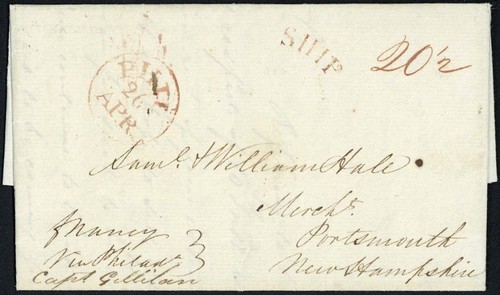 SHIP
20½
PHI
26
APR
Saml. & William Hale
Mercht.
Portsmouth
New Hampshire
Nancy
Via Philada.
Capt Gillilan